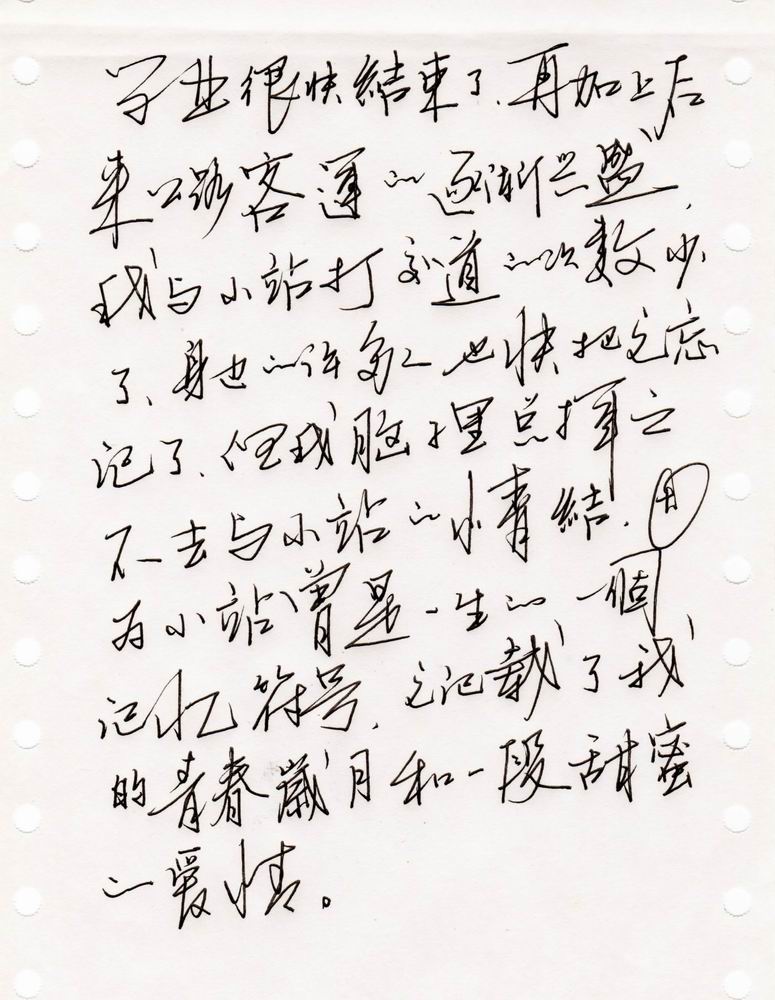 学业很快結束了、再加上后
来公路客運的逐漸兴盛、
我与小站打交道的次数少
了、身边的许多人也快把它忘
记了、但我脑裡总揮之
不去与小站的情結、因
为小站曾是一生的一個
记忆符号、它记载了我
的青春歲月和一段甜蜜
的爱情。